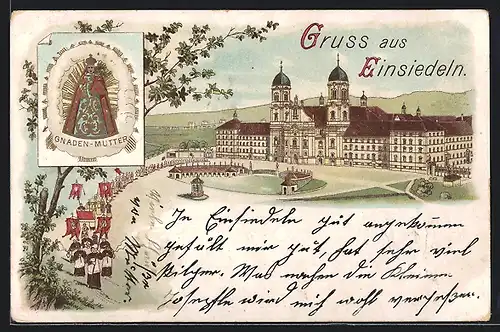 Gruss aus
Einsiedeln.
GNADEN-MUTTER
In Einsiedeln gut angekommen
gefällt mir gut, hat sehr viel
Pilger. Was machen die Kleinen
Josephle wird mich wohl